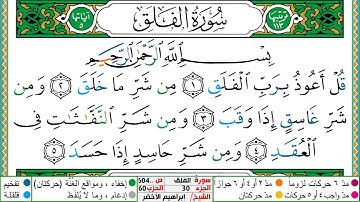 ترتيبها ١١٣ سُورَةُ الفَلَقِ آياتها ٥
بِسْمِ اللَّهِ الرَّحْمَٰنِ الرَّحِيمِ
قُلْ أَعُوذُ بِرَبِّ الْفَلَقِ ١ مِن شَرِّ مَا خَلَقَ ٢ وَمِن
شَرِّ غَاسِقٍ إِذَا وَقَبَ ٣ وَمِن شَرِّ النَّفَّاثَاتِ فِي
الْعُقَدِ ٤ وَمِن شَرِّ حَاسِدٍ إِذَا حَسَدَ ٥
مدّ ٦ حركات لزوما مدّ ٢ أو ٤ أو ٦ جوازا إخفاء ، ومواقع الغنة (حركتان) تفخيم
مدّ واجب ٤ أو ٥ حركات مدّ حركتان إدغام ، وما لا يُلفظ قلقلة
سورة الفلق ص604
الجزء 30 الحزب60
الشيخ/ ابراهيم الأخضر